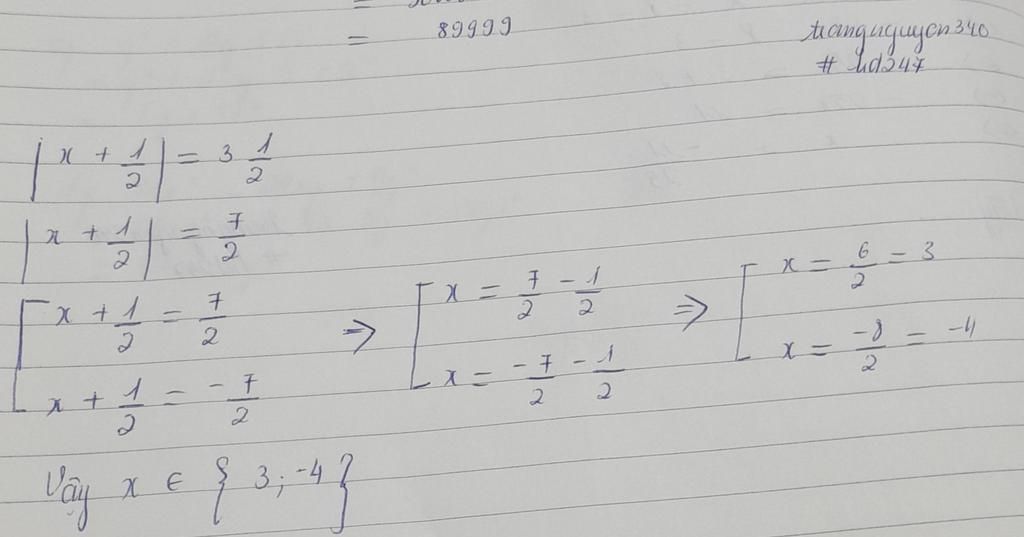 = 89999
trangnguyen340
# hd247
|x + 1/2| = 3 1/2
|x + 1/2| = 7/2
[ x + 1/2 = 7/2
x + 1/2 = -7/2
=> [ x = 7/2 - 1/2
x = -7/2 - 1/2
=> [ x = 6/2 = 3
x = -8/2 = -4
Vậy x ∈ { 3; -4 }